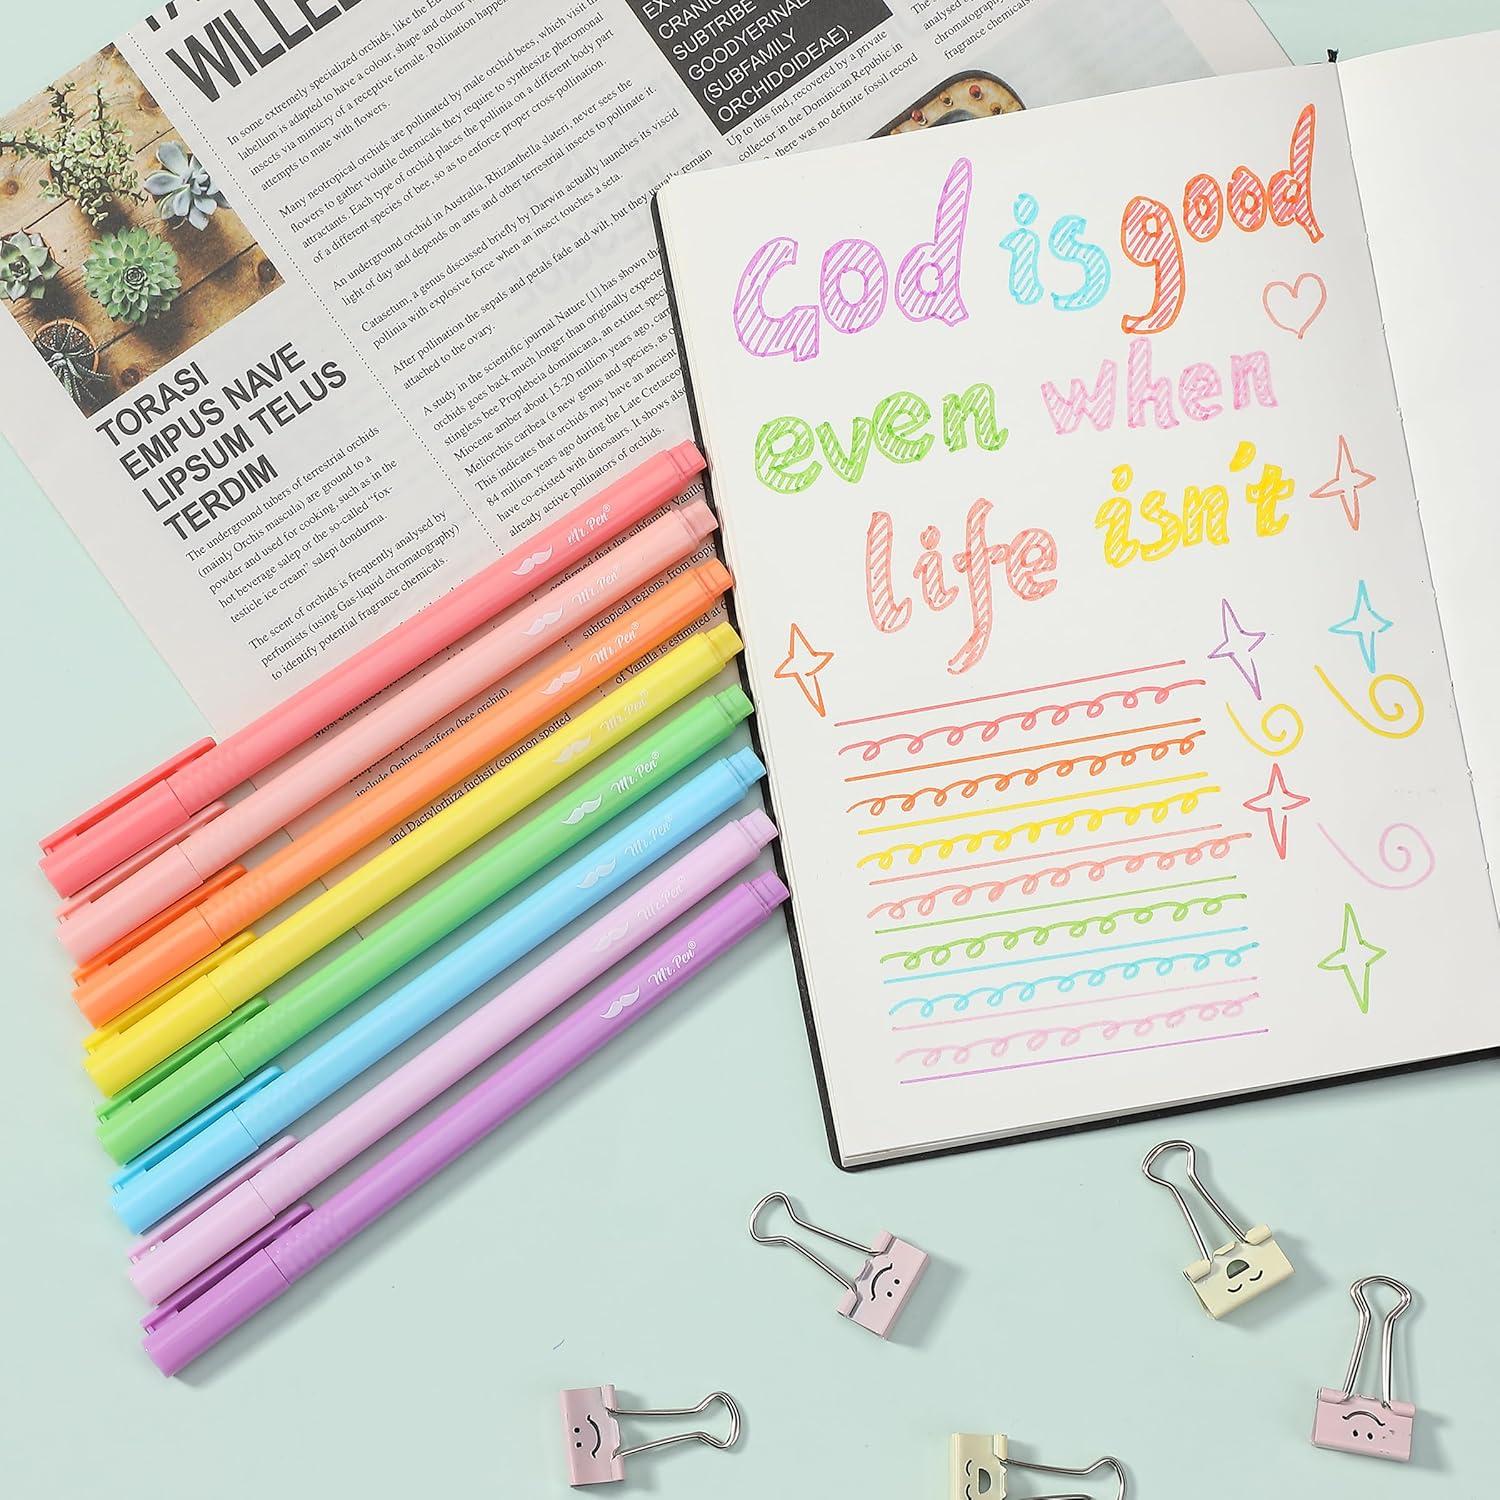 WILLE
In some extremely specialized orchids, like the
labellum is adapted to have a colour, shape and odour
insects via mimicry of a receptive female. Pollination happens
attempts to mate with flowers.
Many neotropical orchids are pollinated by male orchid bees, which visit the
flowers to gather volatile chemicals they require to synthesize pheromonal
attractants. Each type of orchid places the pollinia on a different body part
of a different species of bee, so as to enforce proper cross-pollination.
An underground orchid in Australia, Rhizanthella slateri, never sees the
light of day and depends on ants and other terrestrial insects to pollinate it.
Catasetum, a genus discussed briefly by Darwin actually launches its viscid
pollinia with explosive force when an insect touches a seta.
After pollination the sepals and petals fade and wilt, but they usually remain
attached to the ovary.
A study in the scientific journal Nature [1] has shown
orchids goes back much longer than originally expected
stingless bee Proplebeia dominicana, an extinct
Miocene amber about 15-20 million years ago,
Meliorchis caribea (a new genus and species,
This indicates that orchids may have an ancient
84 million years ago during the Late Cretaceo
have co-existed with dinosaurs. It shows also
already active pollinators of orchids.
EXT
CRANIC
SUBTRIBE
GOODYERINAE
(SUBFAMILY
ORCHIDOIDEAE).
Up to this find, recovered by a private
collector in the Dominican Republic in
there was no definite fossil record
analysed
chromatography
fragrance chemicals.
TORASI
EMPUS NAVE
LIPSUM TELUS
TERDIM
The underground tubers of terrestrial orchids
(mainly Orchis mascula) are ground to a
powder and used for cooking, such as in the
hot beverage salep or the so-called "fox-
testicle ice cream" salepi dondurma.
The scent of orchids is frequently analysed by
perfumists (using Gas-liquid chromatography)
to identify potential fragrance chemicals.
confirmed that the subfamily Vanillo
subtropical regions, from tropic
of Vanilla is estimated at
include Ophrys apifera (bee orchid),
and Dactylorhiza fuchsii (common spotted
Mr. Pen®
Mr. Pen®
Mr. Pen®
Mr. Pen®
Mr. Pen®
Mr. Pen®
Mr. Pen®
Mr. Pen®
God is good
even when
life isn't